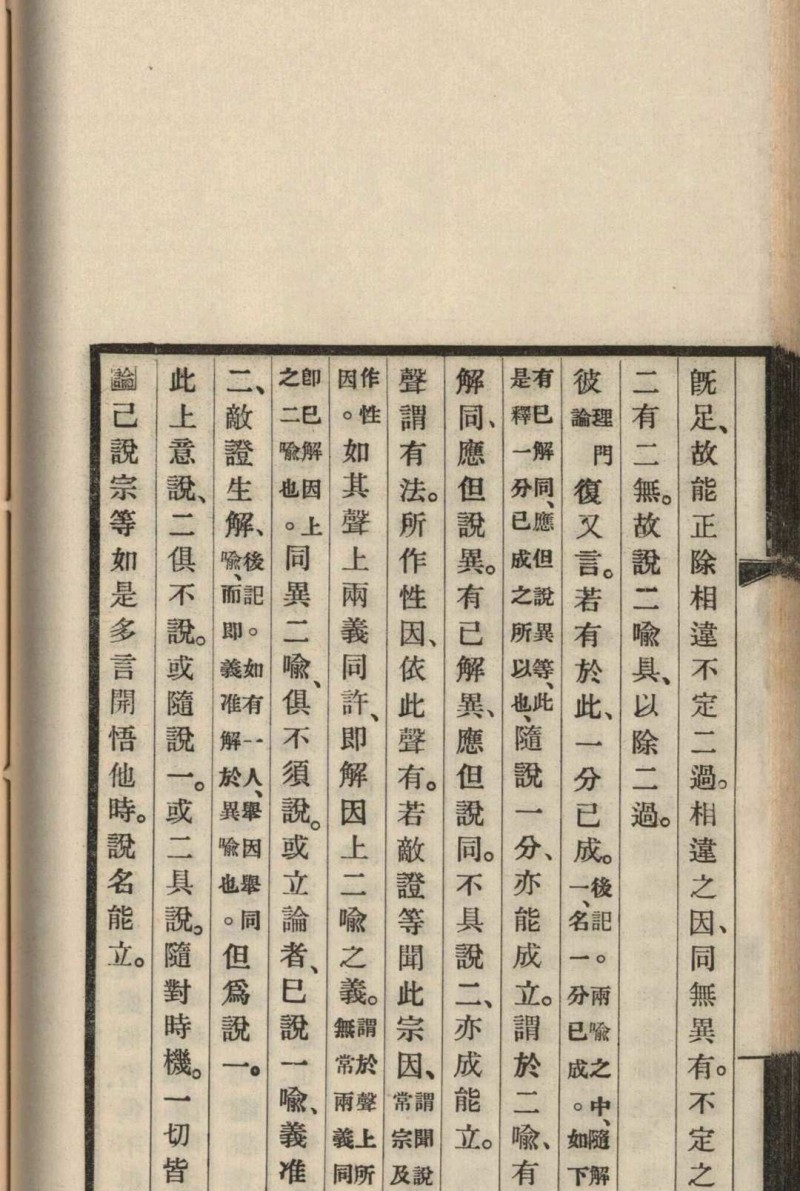 既足、故能正除相違不定二過。相違之因、同無異有。不定之
二有二無。故說二喻具、以除二過。
彼理門論復又言。若有於此、一分已成。後記。兩喻之中、隨解一、名一分已成。如下
有已解同、應但說異等、此是釋一分已成之所以也、隨說一分、亦能成立。謂於二喻、有
解同、應但說異。有已解異、應但說同。不具說二、亦成能立。
聲謂有法。所作性因、依此聲有。若敵證等聞此宗因、謂聞說常宗及
作性因。如其聲上兩義同許、即解因上二喻之義。謂於聲上所無常兩義同
即已解因上之二喻也。同異二喻、俱不須說。或立論者、已說一喻、義准
二、敵證生解、後記。如有一人、舉因舉同喻、而即義准解於異喻也。但爲說一。
此上意說、二俱不說。或隨說一。或二具說。隨對時機。一切皆
論己說宗等如是多言開悟他時。說名能立。